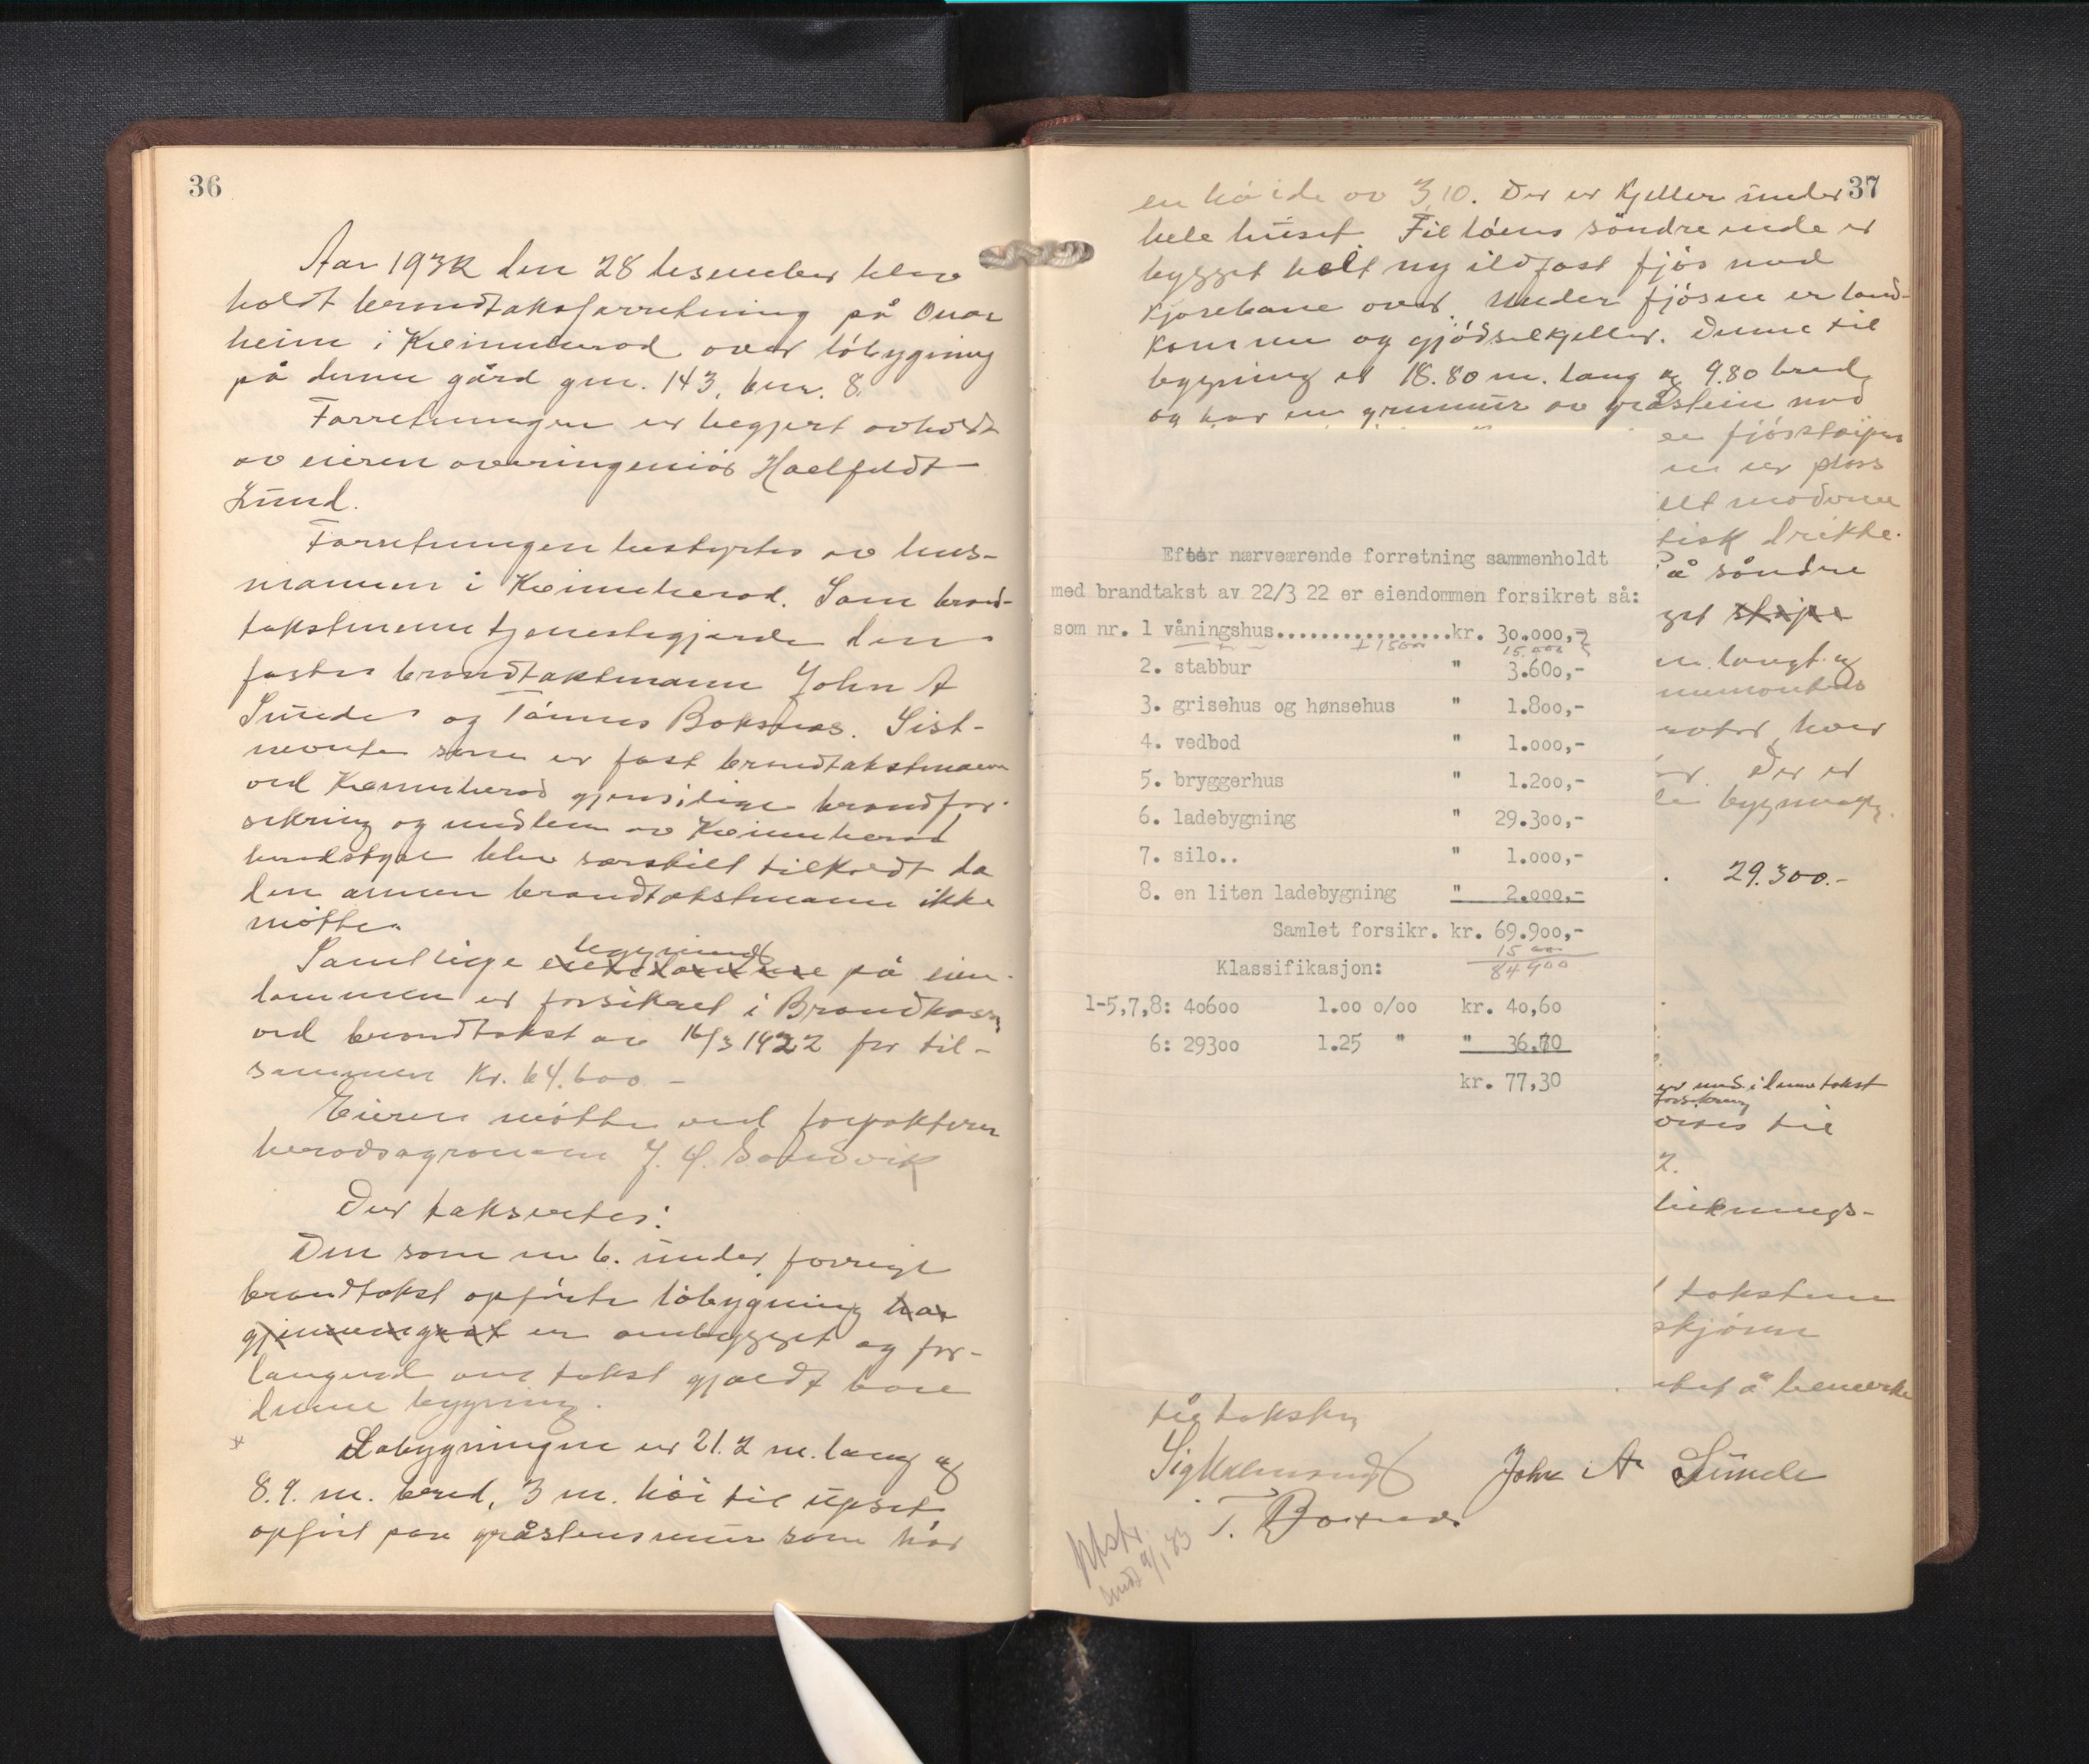 36
Aar 1932 den 28 desember blev
holdt brandtaksforretning på Onar
heim i Kvinnherad over löbygning
på denne gård gnr. 143, bnr. 8.
Forretningen er begjert avholdt
av eieren overingeniör Haelfeldt
Lund.
Forretningen bestyrtes av lens-
mannen i Kvinnherad. Som brand-
takstmenn tjenestegjorde den
faste brandtakstmann John A
Sunde og Tönnes Boksnes. Sist-
nevnte som er fast brandtakstmann
ved Kvinnherad gjensidige brandfor-
sikring og medlem av Kvinnherad
herredstyre blev særskilt tilkaldt da
den annen brandtakstmann ikke
mötte.
bygninger
Samtlige på eien-
dommen er forsikret i Brandkassen
ved brandtakst av 16/3 1922 for til-
sammen Kr. 64.600 -
Eieren mötte ved forpakteren
heradsagronom J. Sandvik
Der taksertes:
Den som nr 6. under forrige
brandtakst opförte löbygning har
er ombygget og for-
langend om takst gjaldt bare
denne bygning.
Löbygningen er 21.2 m. lang og
8.9. m. bred, 3 m. höi til upset,
opfört paa gråstensmur som har
37
en höide av 3,10. Der er kjeller under
hele huset. Til löens söndre ende er
bygget helt ny ildfast fjös med
kjörebane over. Under fjösen er land-
kommen og gjödselkjeller. Denne til
bygning er 18.80 m. lang og 9.80 bred
og har en grunnmur av gråstein med
er plass
elt moderne
tisk drikke.
På söndre
get
en. langt og
motor hver
Der er
29.300.-
Efter nærveærende forretning sammenholdt
med brandtakst av 22/3 22 er eiendommen forsikret så:
som nr. 1 våningshus................kr. 30.000,-
+ 15000 15.000
2. stabbur " 3.600,-
3. grisehus og hønsehus " 1.800,-
4. vedbod " 1.000,-
5. bryggerhus " 1.200,-
6. ladebygning " 29.300,-
7. silo.. " 1.000,-
8. en liten ladebygning " 2.000,-
Samlet forsikr. kr. 69.900,-
15 000
84 900
Klassifikasjon:
1-5,7,8: 40600 1.00 o/oo kr. 40,60
6: 29300 1.25 " " 36.70
kr. 77,30
er med i denne takst
forsikring
vises til
2.
liknings-
takstene
skjönn
tet å bemerke
John A Sunde
T. Boksnes